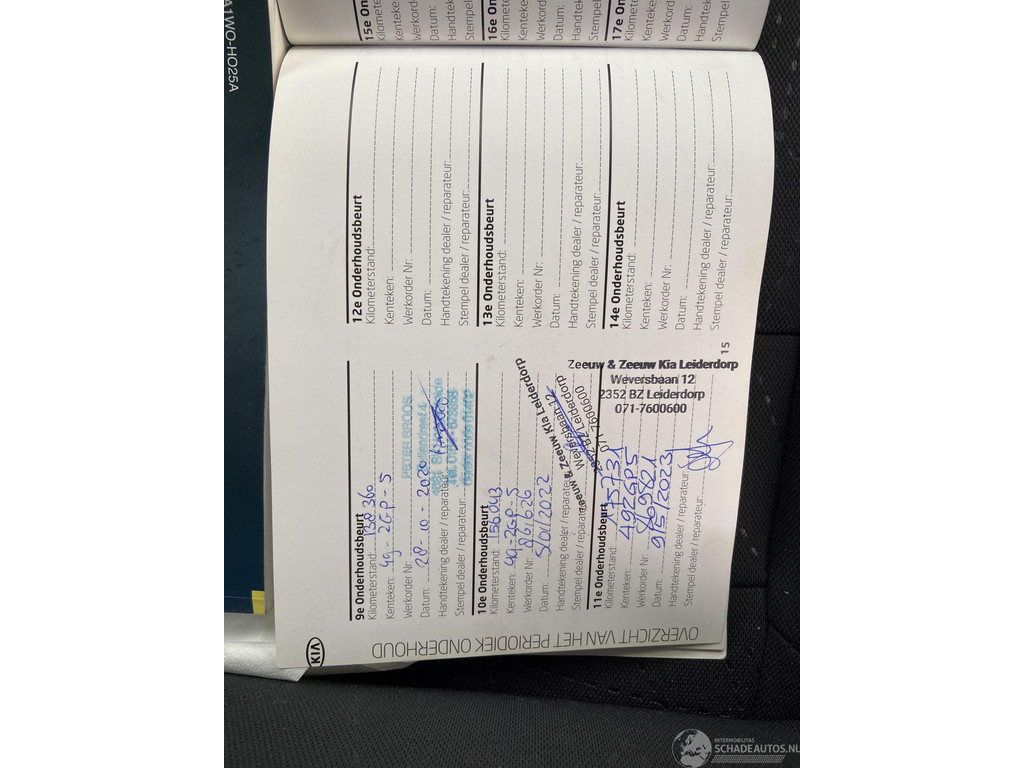 A1WO-HO25A
15e On
Kilometerstand:
Kenteken:
Werkorder
Datum:
Handtekening
Stempel
16e Ond
Kilometerst
Kenteken:
Werkorder
Datum:
Handteken
Stempel d
17e Ond
KIA
OVERZICHT VAN HET PERIODIEK ONDERHOUD
9e Onderhoudsbeurt
Kilometerstand: 138 360
Kenteken: 49-2GP-5
Werkorder Nr:
Datum: 28-10-2020
Handtekening dealer / reparateur:
Stempel dealer / reparateur:
PETER BROOS
10e Onderhoudsbeurt
Kilometerstand: 156043
Kenteken: 49-2GP-5
Werkorder Nr: 861626
Datum: 5/01/2022
Handtekening dealer / reparateur:
Stempel dealer / reparateur:
Zeeuw & Zeeuw Kia Leiderdorp
Weversbaan 12
2352 BZ Leiderdorp
071-7600600
11e Onderhoudsbeurt
Kilometerstand: 175731
Kenteken: 492GP5
Werkorder Nr:
Datum: 9/5/2023
Handtekening dealer / reparateur:
Stempel dealer / reparateur:
Zeeuw & Zeeuw Kia Leiderdorp
Weversbaan 12
2352 BZ Leiderdorp
071-7600600
12e Onderhoudsbeurt
Kilometerstand:
Kenteken:
Werkorder Nr:
Datum:
Handtekening dealer / reparateur:
Stempel dealer / reparateur:
13e Onderhoudsbeurt
Kilometerstand:
Kenteken:
Werkorder Nr:
Datum:
Handtekening dealer / reparateur:
Stempel dealer / reparateur:
14e Onderhoudsbeurt
Kilometerstand:
Kenteken:
Werkorder Nr:
Datum:
Handtekening dealer / reparateur:
Stempel dealer / reparateur:
15
INTERMOBILITAS
SCHADEAUTOS.NL